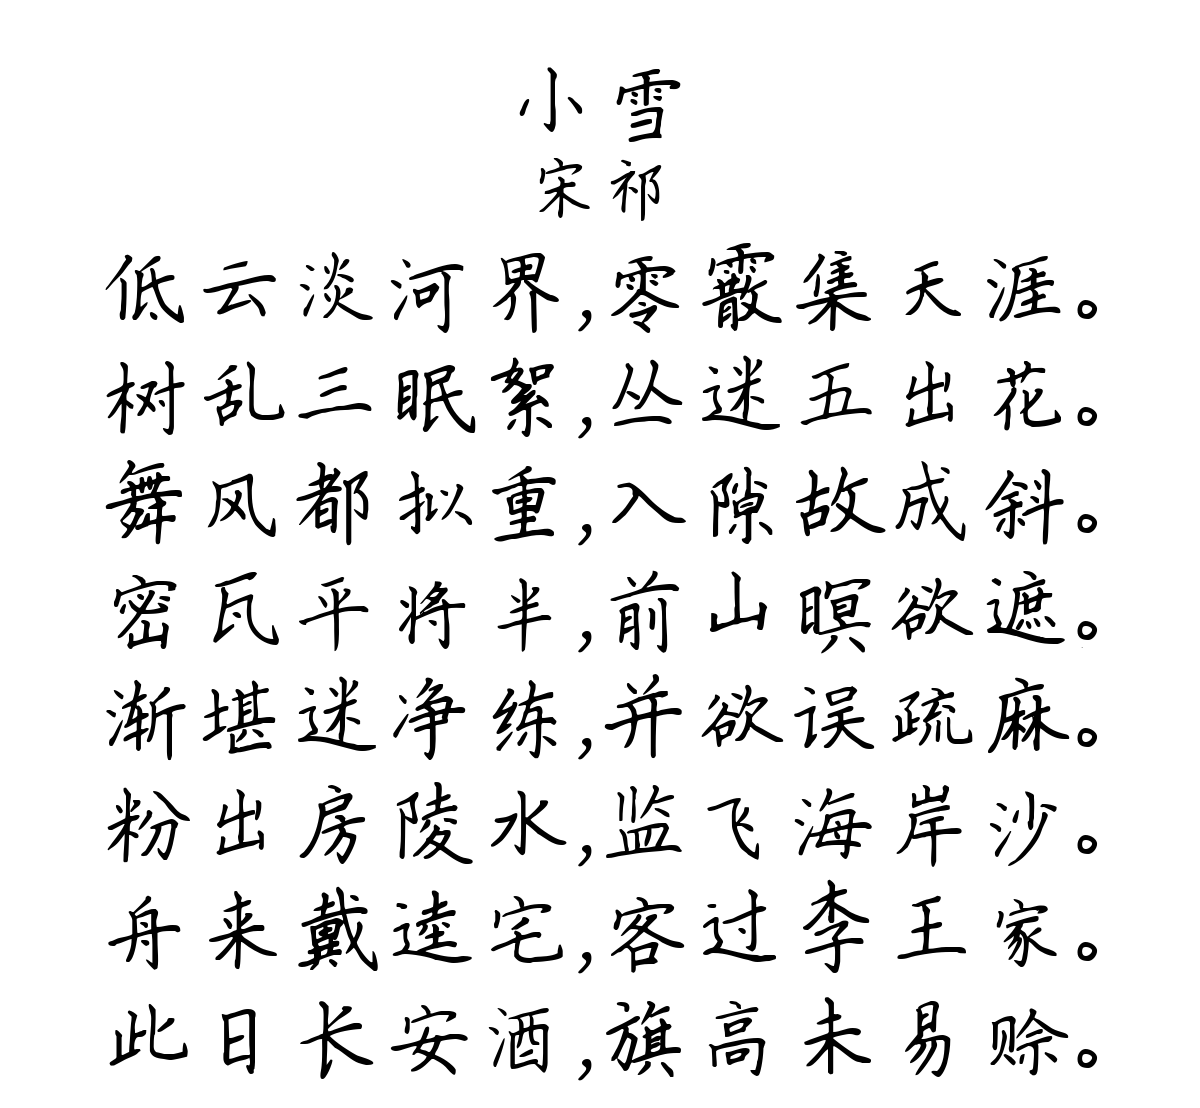 小雪
宋祁
低云淡河界,零霰集天涯。
树乱三眠絮,丛迷五出花。
舞风都拟重,入隙故成斜。
密瓦平将半,前山暝欲遮。
渐堪迷净练,并欲误疏麻。
粉出房陵水,监飞海岸沙。
舟来戴逵宅,客过李王家。
此日长安酒,旗高未易赊。